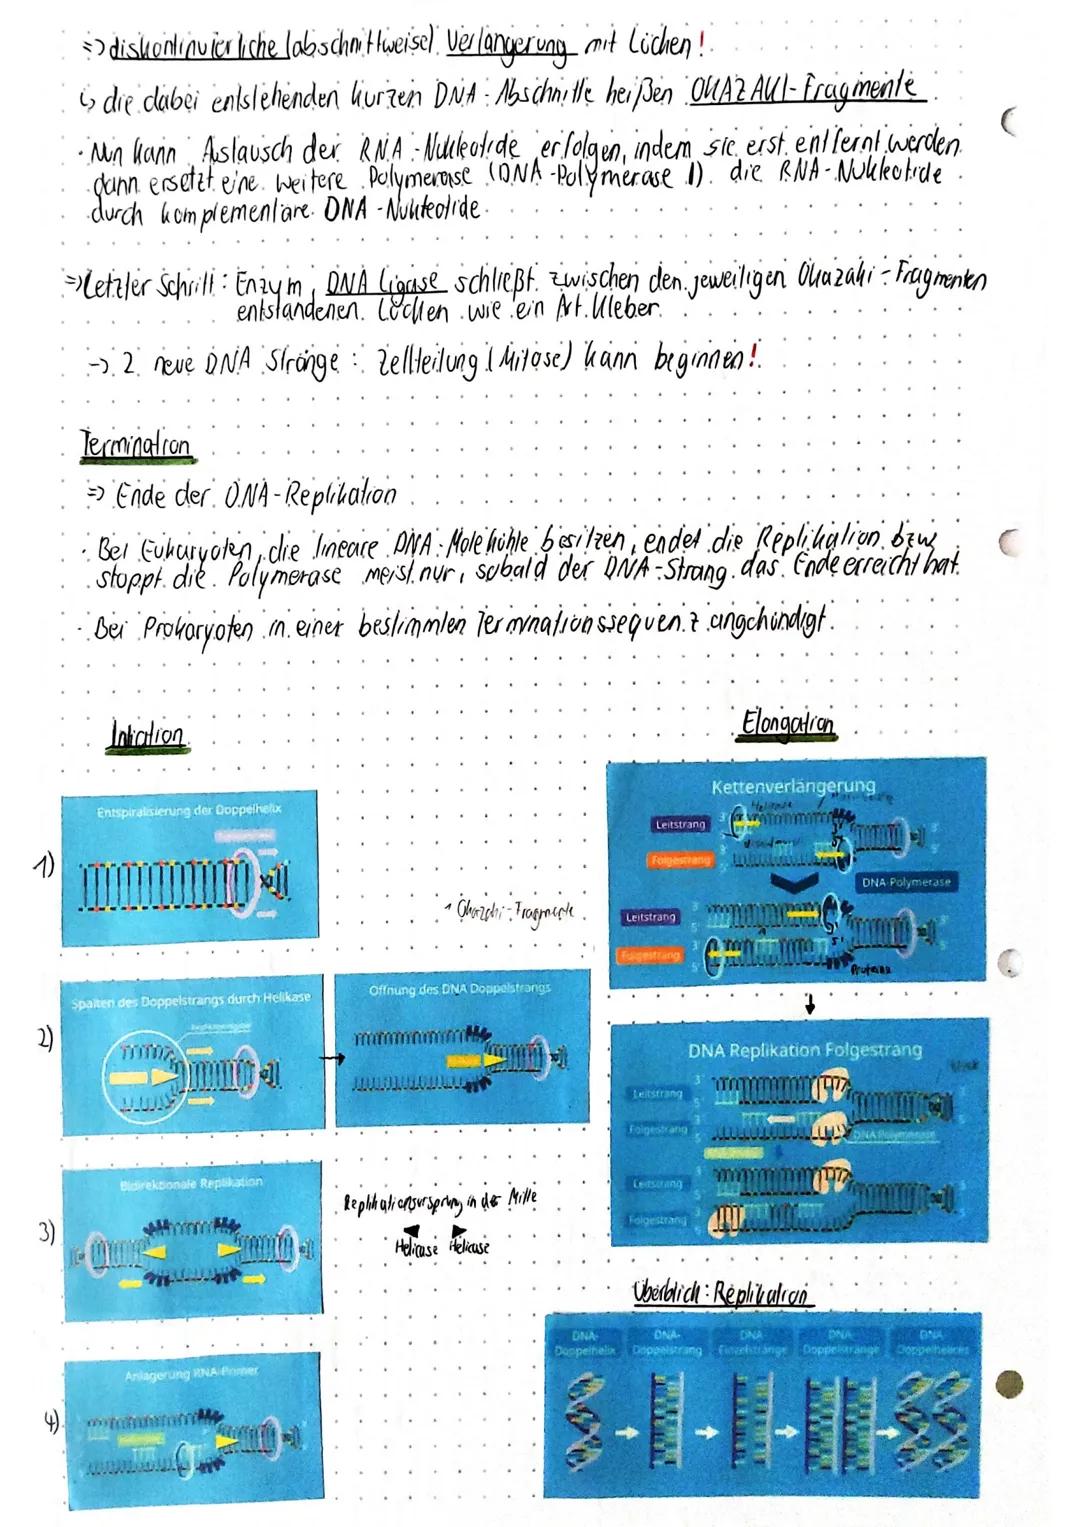 => diskontinuierliche (abschnittweise) Verlängerung mit Lücken!
↳ die dabei entstehenden kurzen DNA-Abschnitte heißen OKAZAKI-Fragmente
· Nun kann Austausch der RNA-Nukleotide erfolgen, indem sie erst entfernt werden
dann ersetzt eine weitere Polymerase (DNA-Polymerase 1) die RNA-Nukleotide
durch komplementäre DNA-Nukleotide.
=> Letzter Schritt: Enzym, DNA Ligase schließt zwischen den jeweiligen Okazaki-Fragmenten
entstandenen Lücken wie ein Art Kleber.
-> 2 neue DNA Stränge: Zellteilung (Mitose) kann beginnen!
Termination
=> Ende der DNA-Replikation
· Bei Eukaryoten, die lineare DNA-Moleküle besitzen, endet die Replikation bzw.
stoppt die Polymerase meist nur, sobald der DNA-Strang das Ende erreicht hat.
· Bei Prokaryoten in einer bestimmten Terminationssequenz angekündigt.
Initiation
Elongation
1)
Entspiralisierung der Doppelhelix
Okazaki-Fragmente
2)
Spalten des Doppelstrangs durch Helikase
Replikationsgabel
Öffnung des DNA Doppelstrangs
3)
Bidirektionale Replikation
Replikationsursprung in der Mitte
Helicase Helicase
4)
Anlagerung RNA-Primer
Kettenverlängerung
Leitstrang
3'
Folgestrang
5'
DNA-Polymerase
Leitstrang
Folgestrang
Proteine
DNA Replikation Folgestrang
Leitstrang
Folgestrang
DNA Polymerase
Leitstrang
Folgestrang
Überblick: Replikation
DNA-Doppelhelix
DNA-Doppelstrang
DNA Einzelstränge
DNA Doppelstränge
DNA Doppelhelices